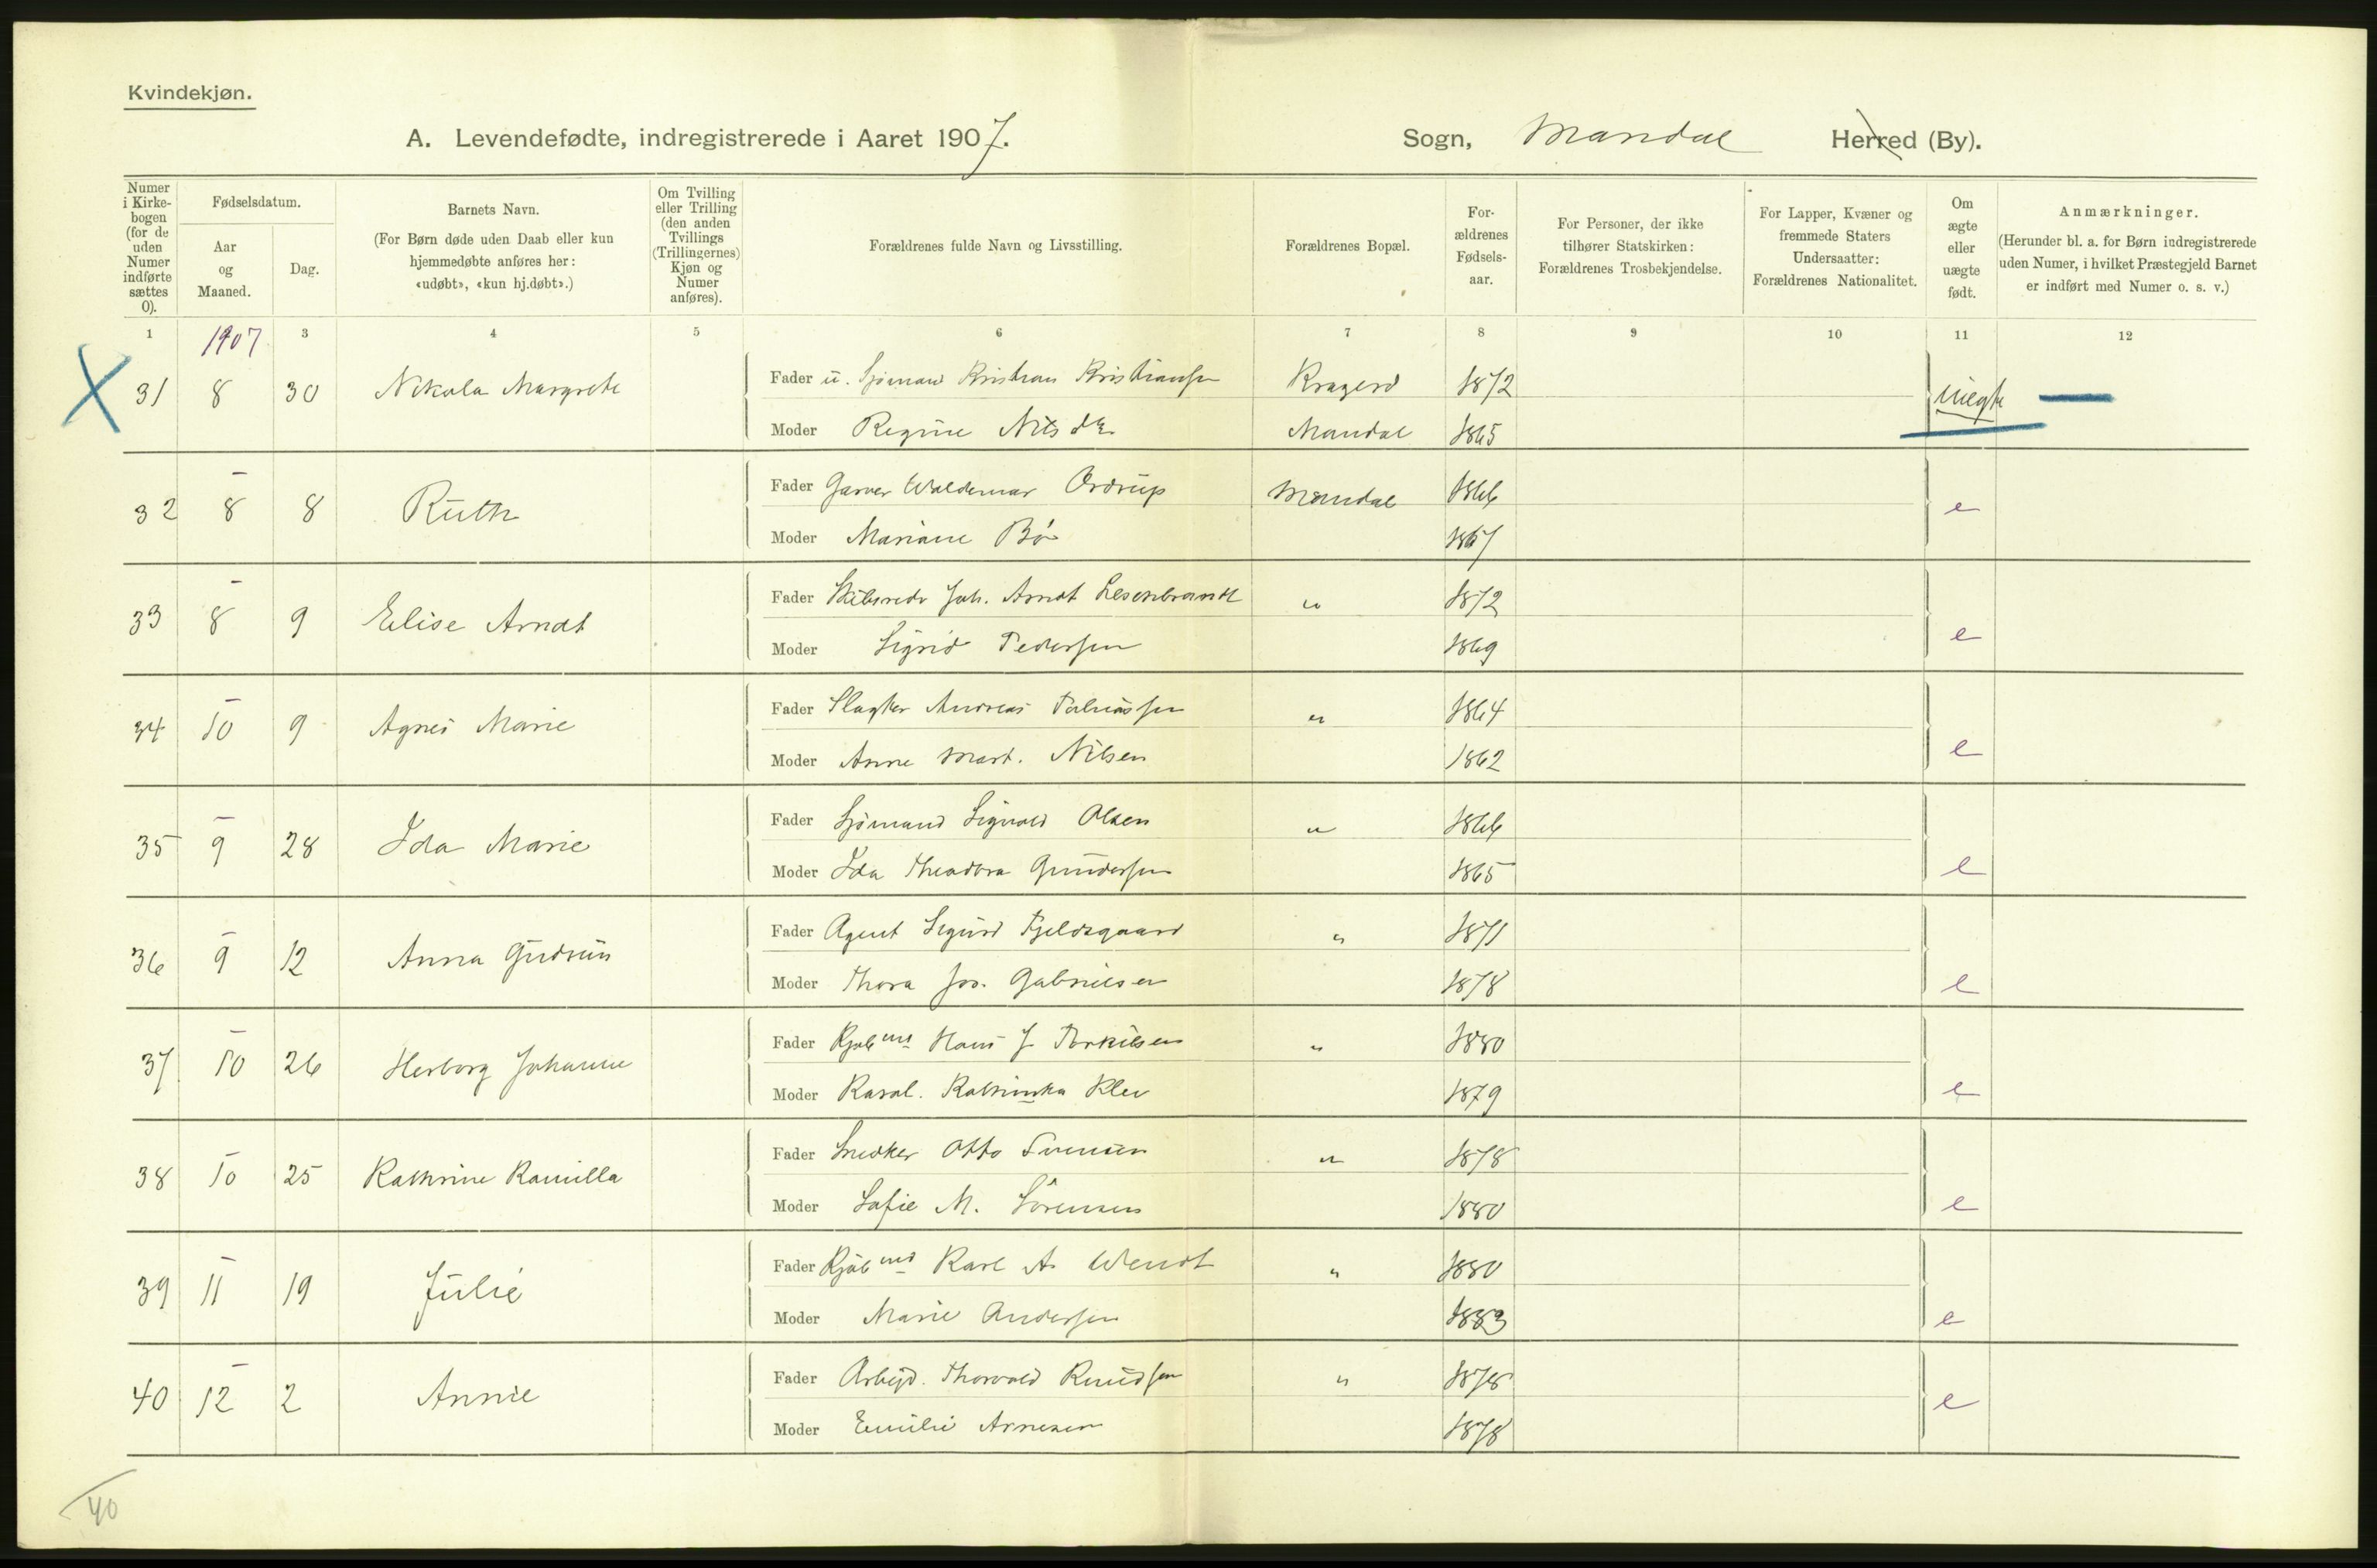 Kvindekjøn.
A. Levendefødte, indregistrerede i Aaret 1907.
Sogn, Mandal Herred (By).
Numer i Kirkebogen (for de uden Numer indførte sættes 0).
Fødselsdatum.
Aar og Maaned.
Dag.
Barnets Navn.
(For Børn døde uden Daab eller kun hjemmedøbte anføres her: «udøbt», «kun hj.døbt».)
Om Tvilling eller Trilling (den anden Tvillings (Trillingernes) Kjøn og Numer anføres).
Forældrenes fulde Navn og Livsstilling.
Forældrenes Bopæl.
Forældrenes Fødselsaar.
For Personer, der ikke tilhører Statskirken: Forældrenes Trosbekjendelse.
For Lapper, Kvæner og fremmede Staters Undersaatter: Forældrenes Nationalitet.
Om ægte eller uægte født.
Anmærkninger.
(Herunder bl. a. for Børn indregistrerede uden Numer, i hvilket Præstegjeld Barnet er indført med Numer o. s. v.)
1 3 4 5 6 7 8 9 10 11 12
1907
31 8 30 Nikola Margrete Fader u. Sjømand Kristian Kristiansen Kragerø 1872 uegte
Moder Regine Nilsdtr. Mandal 1865
32 8 8 Ruth Fader Garver Waldemar Ordrup Mandal 1866 e
Moder Mariane Bø 1867
33 8 9 Elise Arndt Fader Skibsredr Joh. Arndt " 1872 e
Moder Sigrid Pedersen 1869
34 10 9 Agnes Marie Fader Slagter Andreas Tobiassen " 1864 e
Moder Anne Mart. Nilsen 1862
35 9 28 Ida Marie Fader Sjømand Sigvald Olsen " 1866 e
Moder Ida Theodora Gundersen 1865
36 9 12 Anna Gudrun Fader Agent Sigurd Fjeldsgaard " 1871 e
Moder Thora Jos. Gabrielsen 1878
37 10 26 Herborg Johanne Fader Kjøbmd Hans J. Torkilsen " 1880 e
Moder Raral. Kathinka Klev 1879
38 10 25 Kathrine Kamilla Fader Snedker Otto Svensen " 1878 e
Moder Sofie M. Sørensen 1880
39 11 19 Julie Fader Kjøbmd Karl A. Wendt " 1880 e
Moder Marie Andersen 1883
40 12 2 Annie Fader Arbejd. Thorvald Knudsen " 1878 e
Moder Emilie Arnesen 1878
40